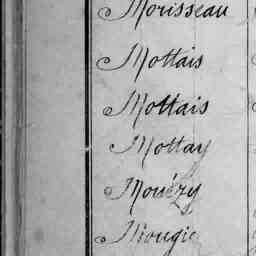 Morisseau
Mottais
Mottais
Mottay
Mouézy
Mougie